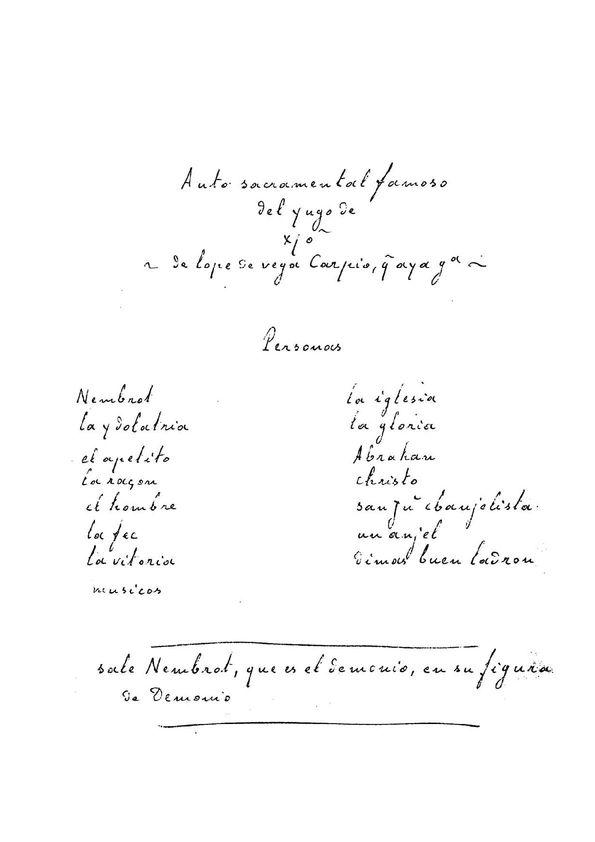 Auto sacramental famoso
del yugo de
xpõ
~ de lope de vega Carpio, q̃ aya gª ~
Personas
Nembrot
la ydolatria
el apetito
la raçon
el hombre
la fee
la vitoria
musicos
la iglesia
la gloria
Abrahan
christo
san Juº ebanjelista.
un anjel
dimas buen ladron
sale Nembrot, que es el demonio, en su figura
de Demonio